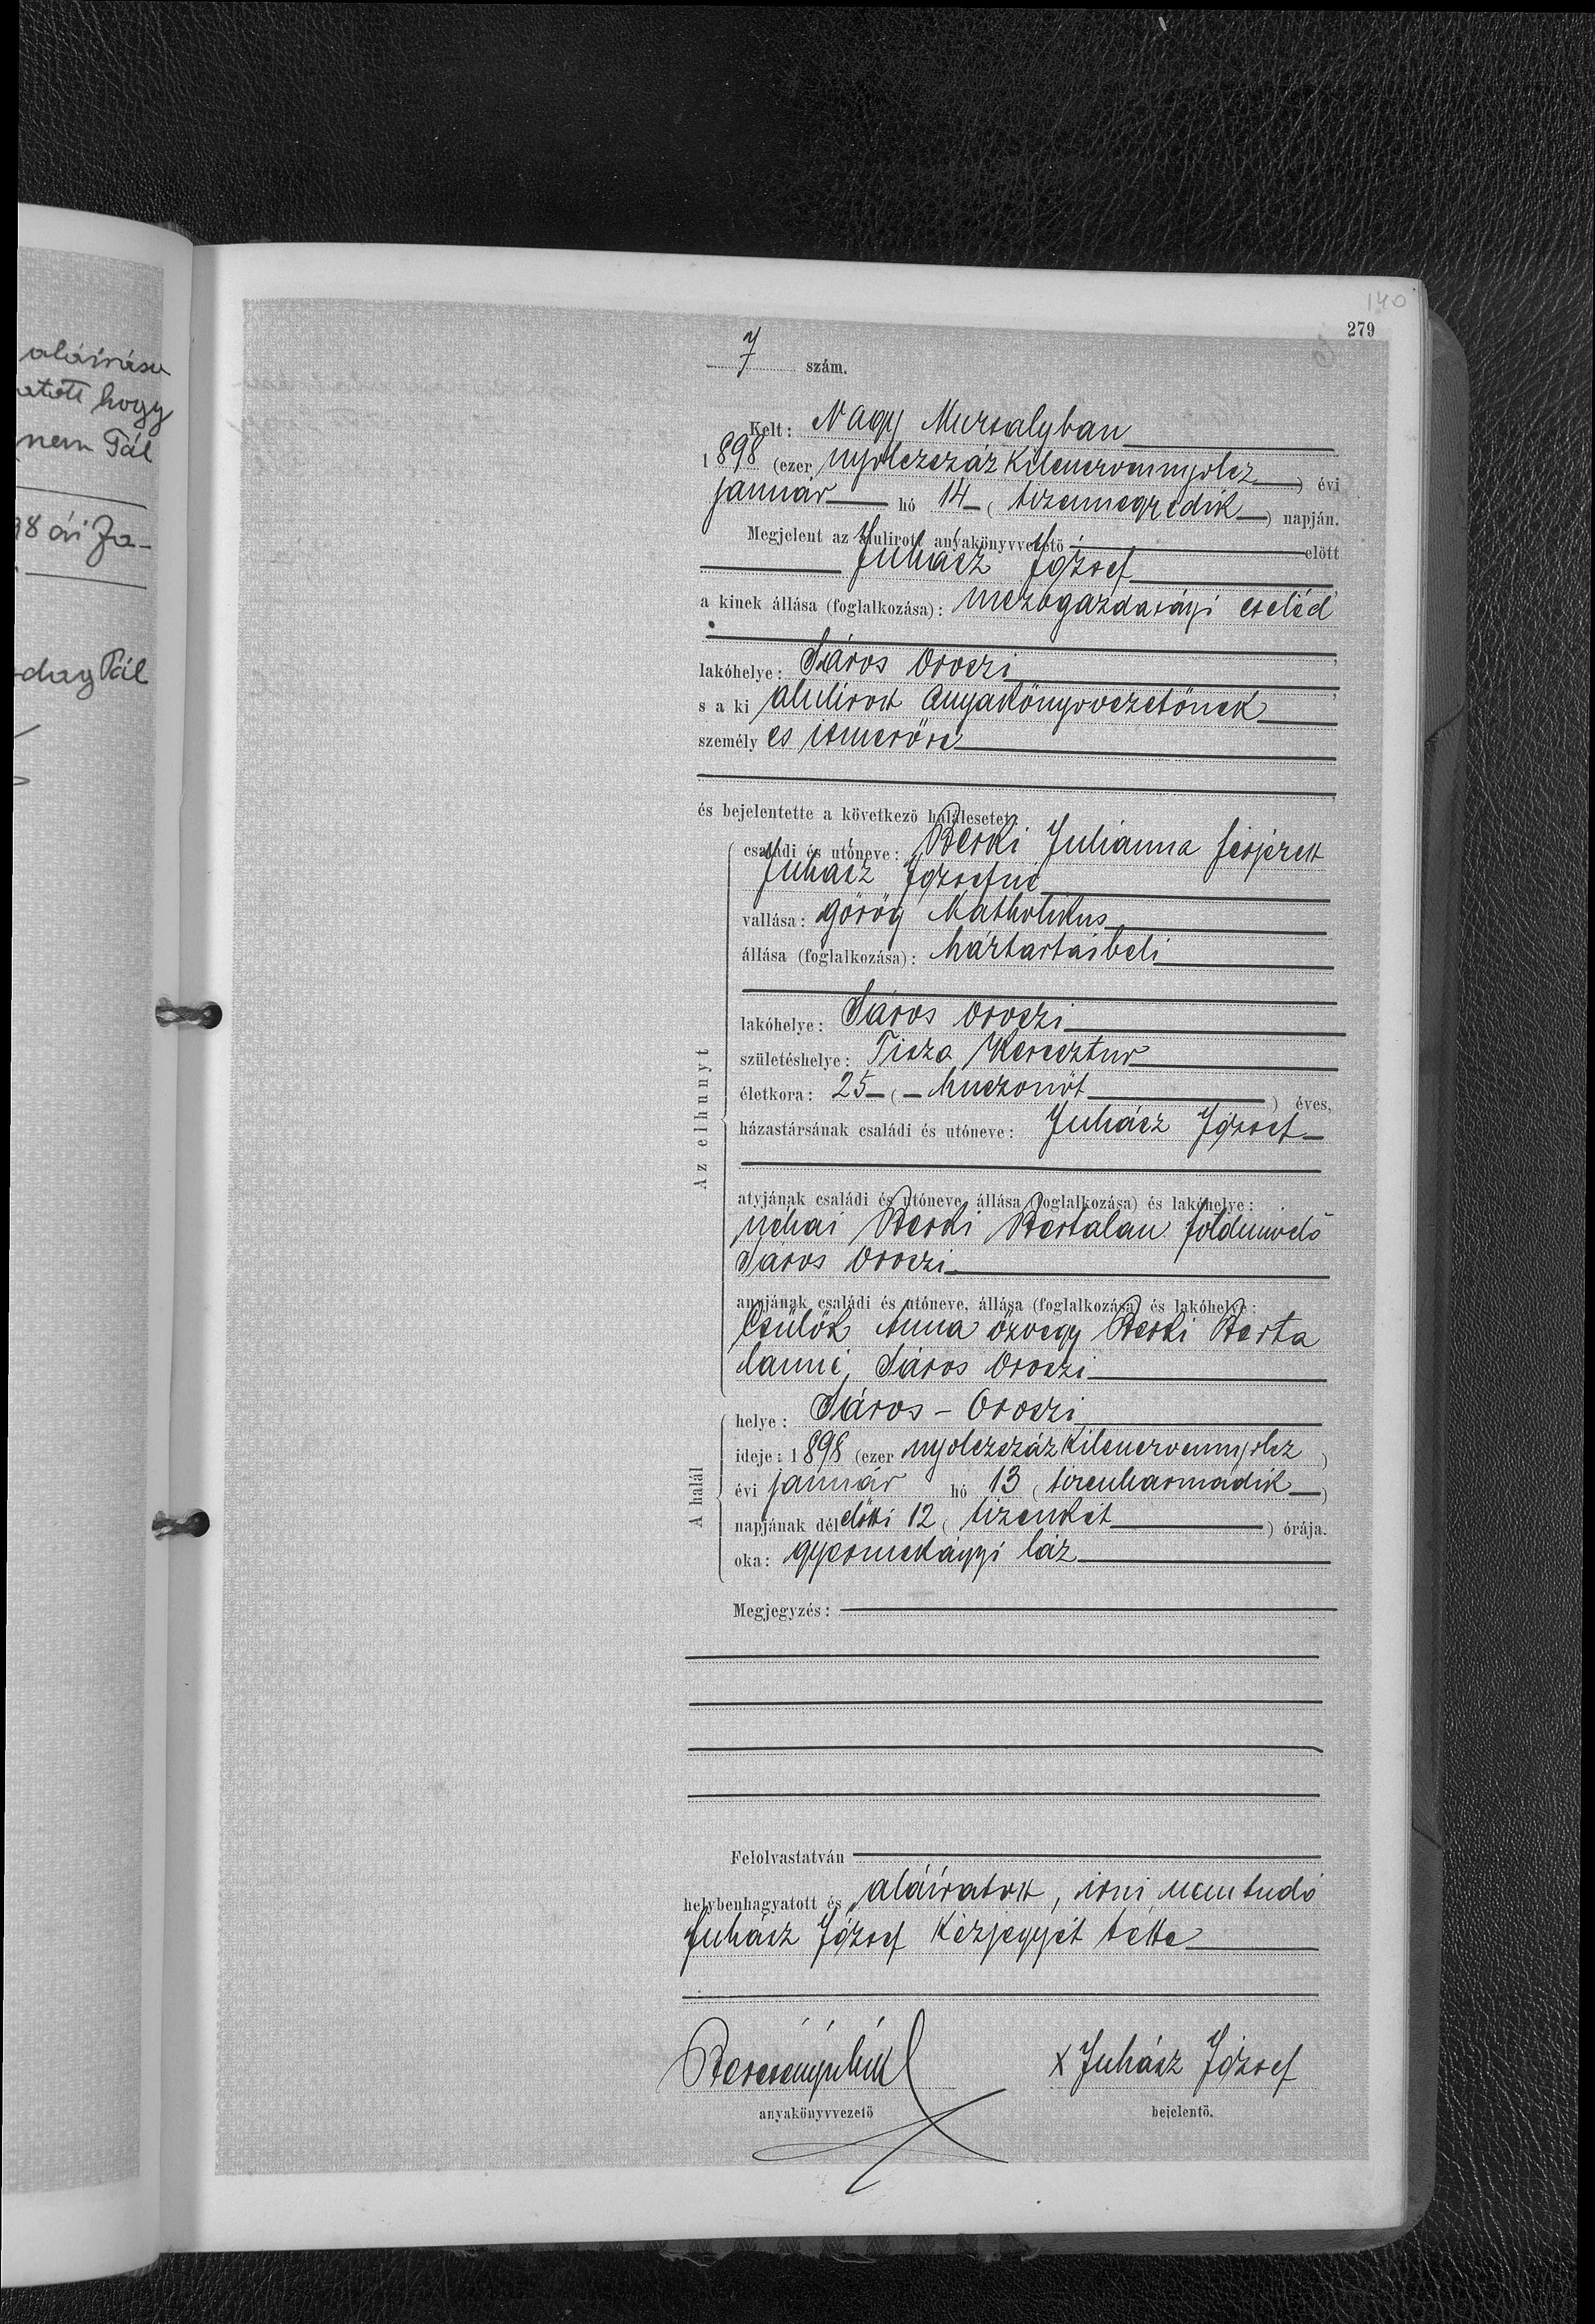 140
279
7 szám.
Kelt: Nagy Muzsalyban
1898 (ezer nyolczszáz kilenczvennyolcz) évi
január hó 14 (tizennegyedik) napján.
Megjelent az alulirott anyakönyvvezető előtt
Juhász József
a kinek állása (foglalkozása): mezőgazdasági cseléd
lakóhelye: Sáros Oroszi
s a ki alulirott anyakönyvvezetőnek
személyes ismerőse
és bejelentette a következő halálesetet:
Az elhunyt
családi és utóneve: Berki Julianna férjezett
Juhász Józsefné
vallása: görög Katholikus
állása (foglalkozása): háztartásbeli
lakóhelye: Sáros Oroszi
születéshelye: Tisza Keresztur
életkora: 25 (huszonöt) éves,
házastársának családi és utóneve: Juhász József
atyjának családi és utóneve, állása (foglalkozása) és lakóhelye:
néhai Berki Bertalan földmivelő
Sáros Oroszi
anyjának családi és utóneve, állása (foglalkozása) és lakóhelye:
Csülök Anna özvegy Berki Berta
lanné, Sáros Oroszi
A halál
helye: Sáros-Oroszi
ideje: 1898 (ezer nyolczszáz kilenczvennyolcz)
évi január hó 13 (tizenharmadik)
napjának délelőtti 12 (tizenkét) órája.
oka: gyermekágyi láz
Megjegyzés:
Felolvastatván
helybenhagyatott és aláíratott, irni nem tudó
Juhász József kézjegyét tette
x Juhász József
anyakönyvvezető
bejelentő.
aláírása
hogy
nem Pál
98 évi Ja-
Pál